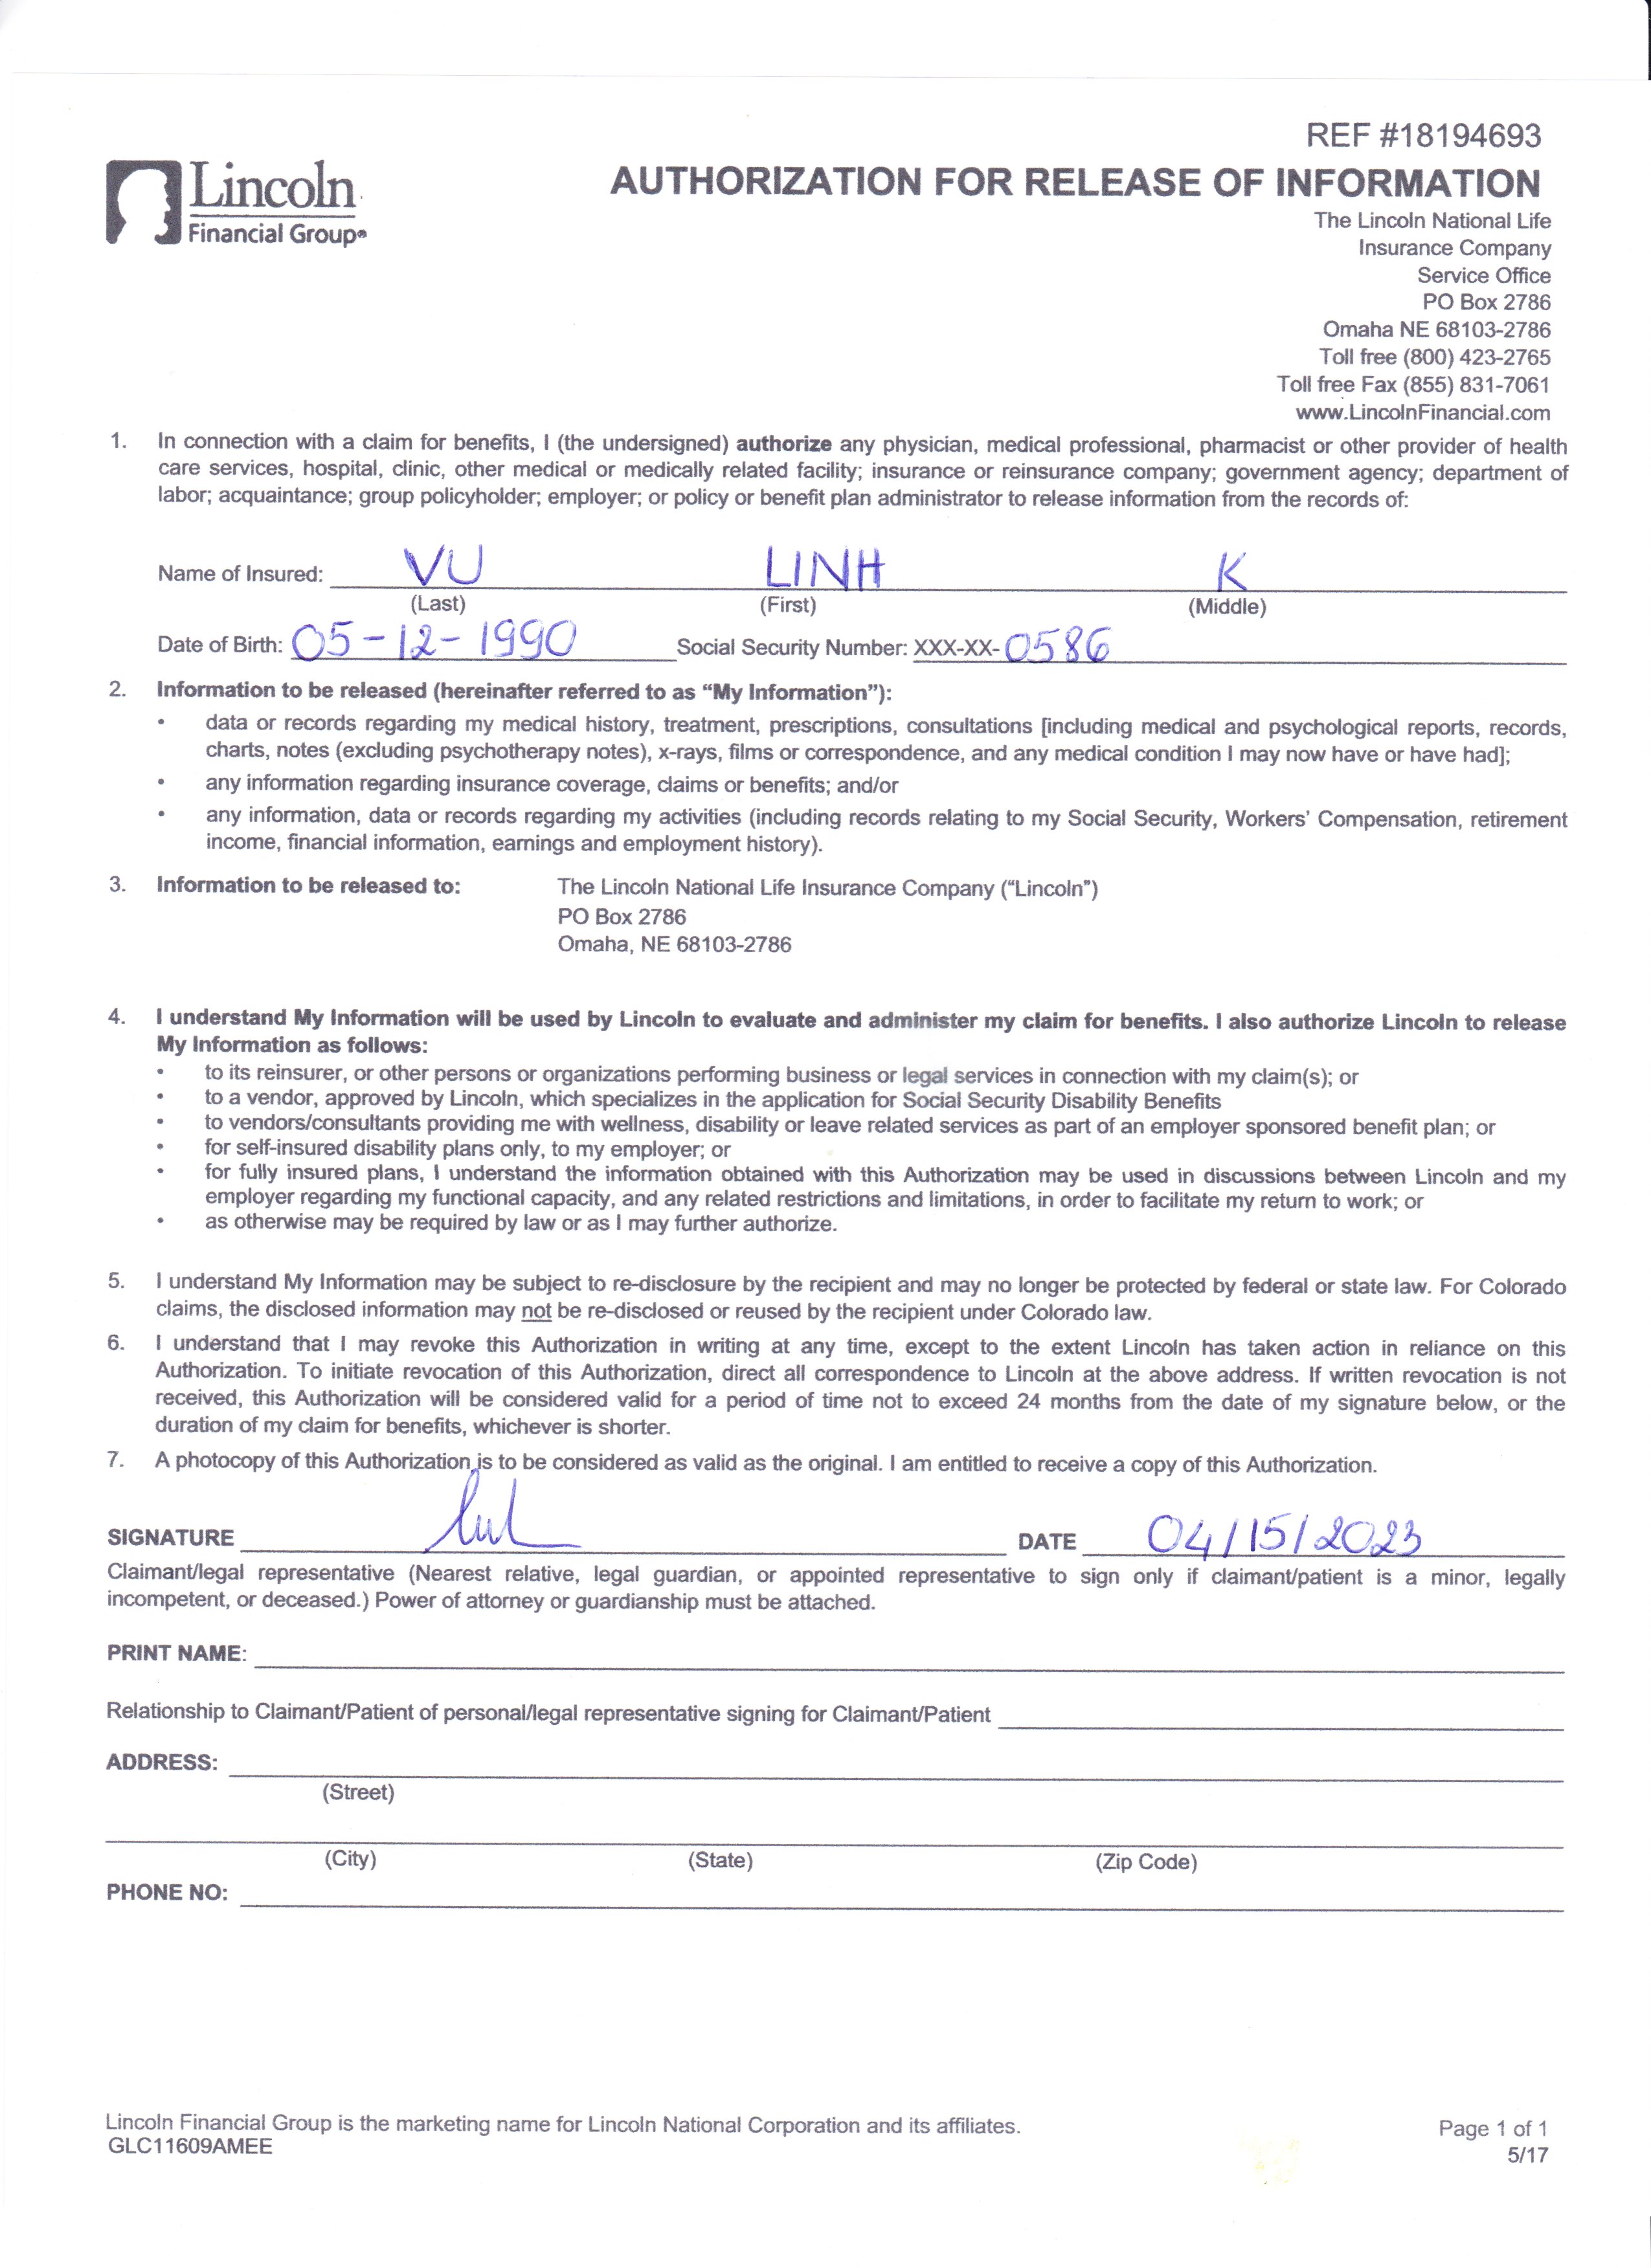 REF #18194693
Lincoln
Financial Group®
AUTHORIZATION FOR RELEASE OF INFORMATION
The Lincoln National Life
Insurance Company
Service Office
PO Box 2786
Omaha NE 68103-2786
Toll free (800) 423-2765
Toll free Fax (855) 831-7061
www.LincolnFinancial.com
1. In connection with a claim for benefits, I (the undersigned) authorize any physician, medical professional, pharmacist or other provider of health
care services, hospital, clinic, other medical or medically related facility; insurance or reinsurance company; government agency; department of
labor; acquaintance; group policyholder; employer; or policy or benefit plan administrator to release information from the records of:
Name of Insured: VU LINH K
(Last) (First) (Middle)
Date of Birth: 05-12-1990 Social Security Number: XXX-XX-0586
2. Information to be released (hereinafter referred to as “My Information”):
• data or records regarding my medical history, treatment, prescriptions, consultations [including medical and psychological reports, records,
charts, notes (excluding psychotherapy notes), x-rays, films or correspondence, and any medical condition I may now have or have had];
• any information regarding insurance coverage, claims or benefits; and/or
• any information, data or records regarding my activities (including records relating to my Social Security, Workers’ Compensation, retirement
income, financial information, earnings and employment history).
3. Information to be released to: The Lincoln National Life Insurance Company (“Lincoln”)
PO Box 2786
Omaha, NE 68103-2786
4. I understand My Information will be used by Lincoln to evaluate and administer my claim for benefits. I also authorize Lincoln to release
My Information as follows:
• to its reinsurer, or other persons or organizations performing business or legal services in connection with my claim(s); or
• to a vendor, approved by Lincoln, which specializes in the application for Social Security Disability Benefits
• to vendors/consultants providing me with wellness, disability or leave related services as part of an employer sponsored benefit plan; or
• for self-insured disability plans only, to my employer; or
• for fully insured plans, I understand the information obtained with this Authorization may be used in discussions between Lincoln and my
employer regarding my functional capacity, and any related restrictions and limitations, in order to facilitate my return to work; or
• as otherwise may be required by law or as I may further authorize.
5. I understand My Information may be subject to re-disclosure by the recipient and may no longer be protected by federal or state law. For Colorado
claims, the disclosed information may not be re-disclosed or reused by the recipient under Colorado law.
6. I understand that I may revoke this Authorization in writing at any time, except to the extent Lincoln has taken action in reliance on this
Authorization. To initiate revocation of this Authorization, direct all correspondence to Lincoln at the above address. If written revocation is not
received, this Authorization will be considered valid for a period of time not to exceed 24 months from the date of my signature below, or the
duration of my claim for benefits, whichever is shorter.
7. A photocopy of this Authorization is to be considered as valid as the original. I am entitled to receive a copy of this Authorization.
SIGNATURE DATE 04/15/2023
Claimant/legal representative (Nearest relative, legal guardian, or appointed representative to sign only if claimant/patient is a minor, legally
incompetent, or deceased.) Power of attorney or guardianship must be attached.
PRINT NAME:
Relationship to Claimant/Patient of personal/legal representative signing for Claimant/Patient
ADDRESS:
(Street)
(City) (State) (Zip Code)
PHONE NO:
Lincoln Financial Group is the marketing name for Lincoln National Corporation and its affiliates.
GLC11609AMEE
Page 1 of 1
5/17